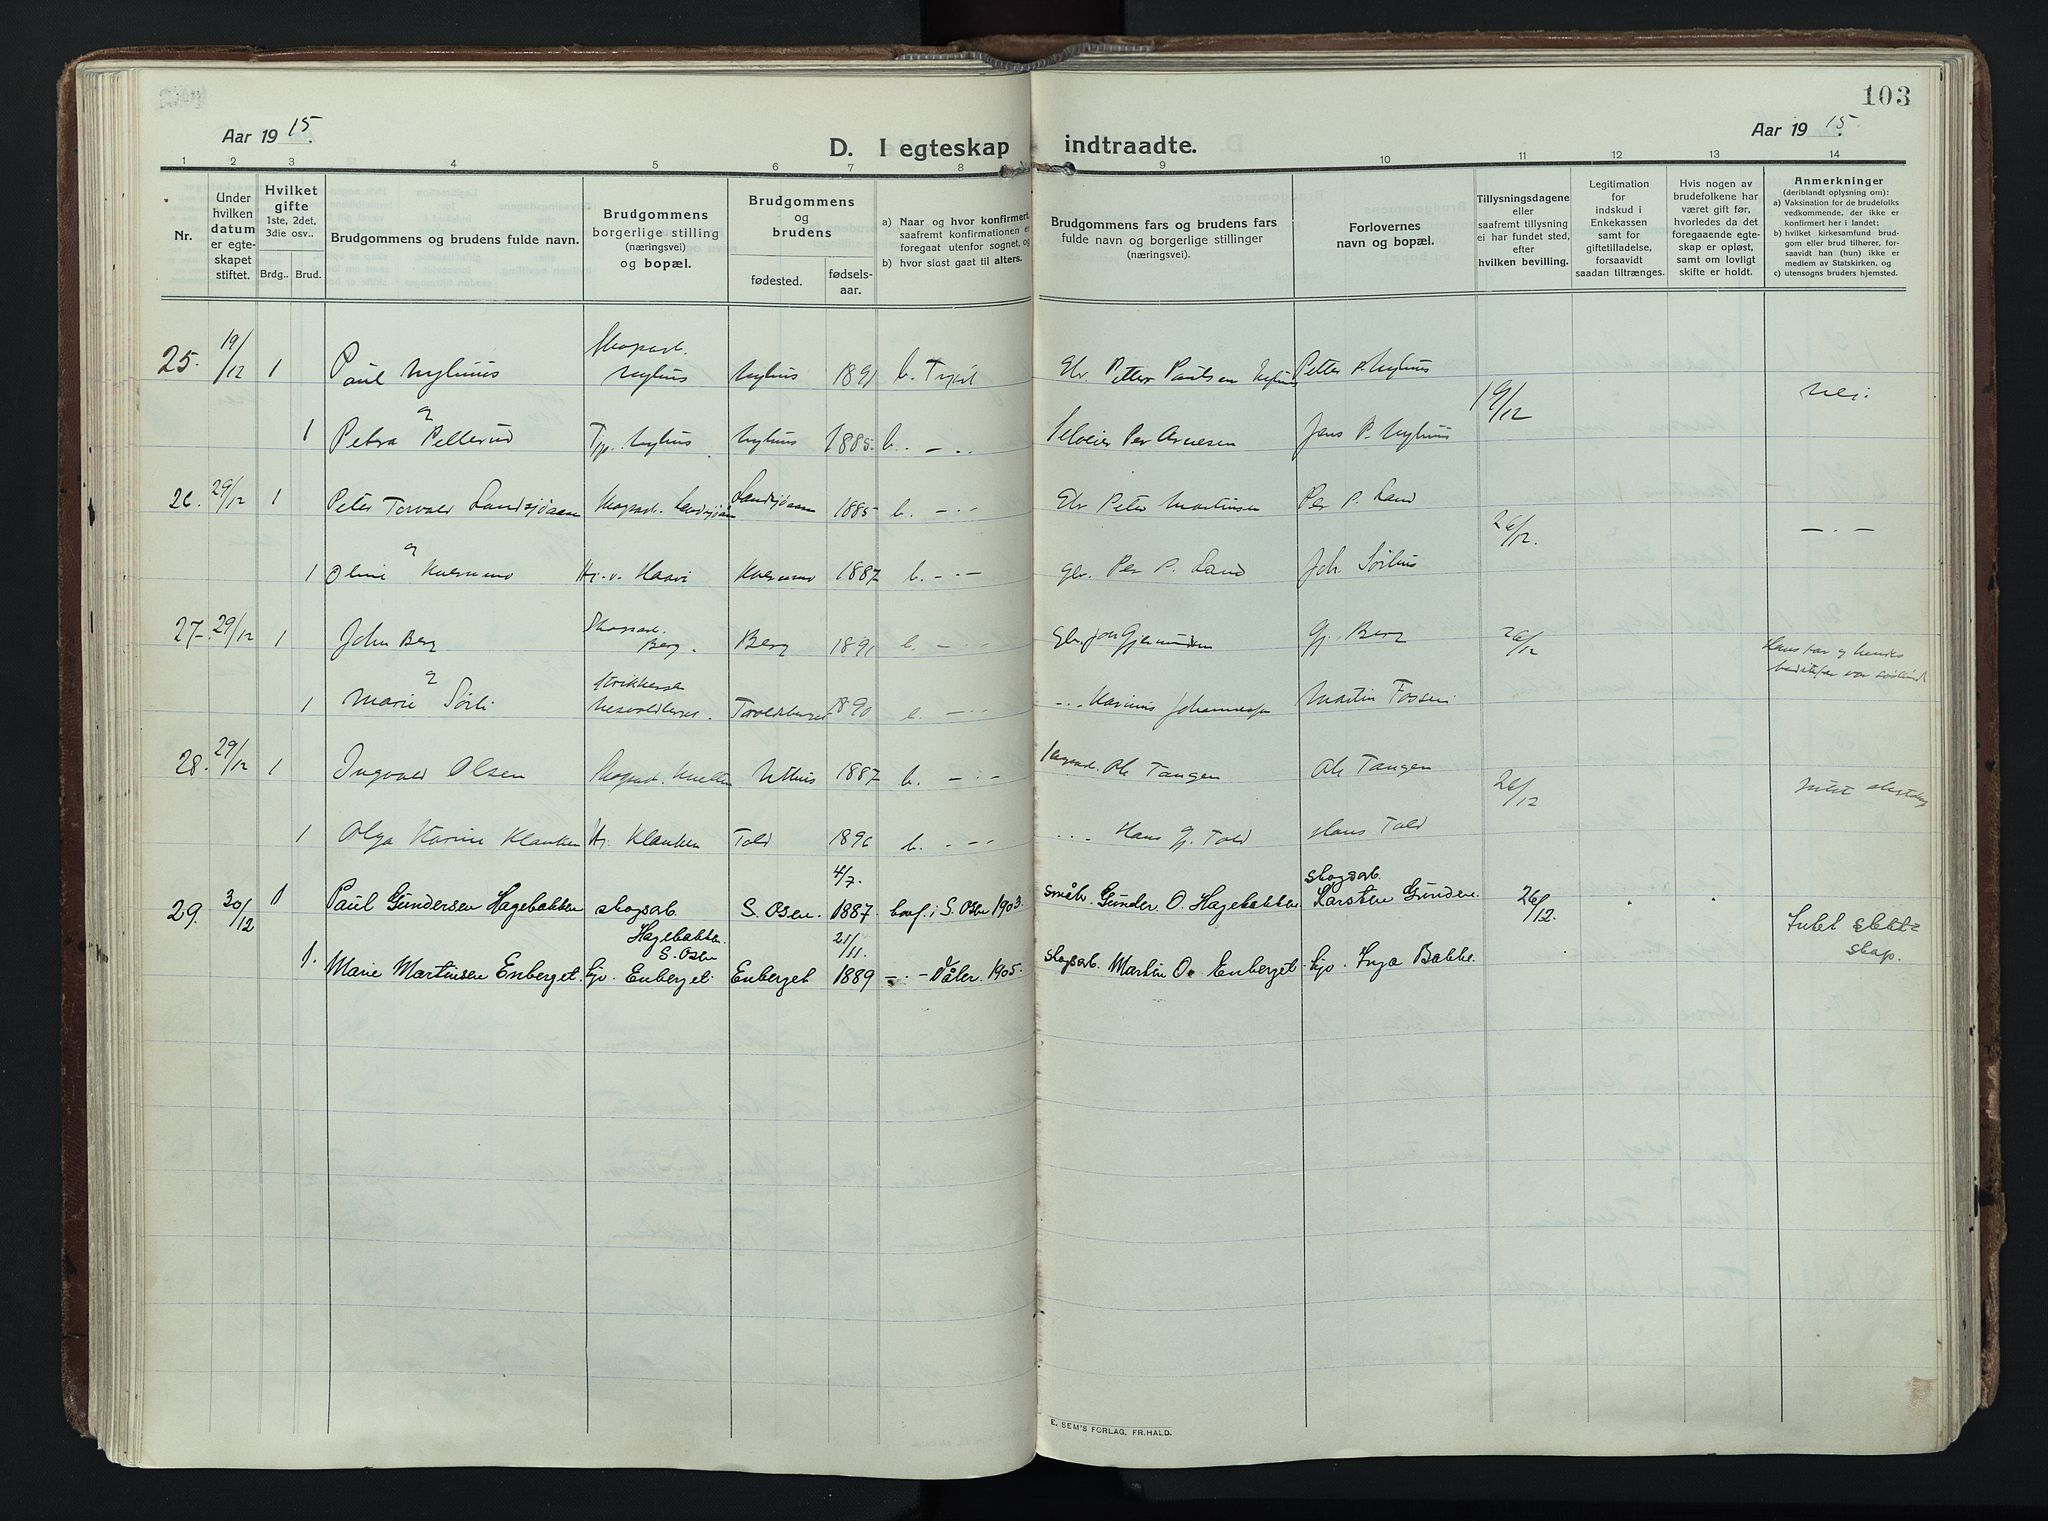 103
Aar 1915.
Aar 1915.
D. I egteskap indtraadte.
1 2 3 4 5 6 7 8 9 10 11 12 13 14
Nr.
Under hvilken datum er egteskapet stiftet.
Hvilket gifte
1ste, 2det, 3die osv..
Brdg.. Brud.
Brudgommens og brudens fulde navn.
Brudgommens borgerlige stilling (næringsvei) og bopæl.
Brudgommens og brudens
fødested.
fødselsaar.
a) Naar og hvor konfirmert, saafremt konfirmationen er foregaat utenfor sognet, og
b) hvor sidst gaat til alters.
Brudgommens fars og brudens fars fulde navn og borgerlige stillinger (næringsvei).
Forlovernes navn og bopæl.
Tillysningsdagene eller saafremt tillysning ei har fundet sted, efter hvilken bevilling.
Legitimation for indskud i Enkekassen samt for giftetilladelse, forsaavidt saadan tiltrænges.
Hvis nogen av brudefolkene har været gift før, hvorledes da det foregaaende egteskap er opløst, samt om lovligt skifte er holdt.
Anmerkninger
(deriblandt oplysning om):
a) Vaksination for de brudefolks vedkommende, der ikke er konfirmert her i landet;
b) hvilket kirkesamfund brudgom eller brud tilhører, forsaavidt han (hun) ikke er medlem av Statskirken, og
c) utensogns bruders hjemsted.
25. 19/12 1 Paul Nyhuus Skogsarb. Nyhus Nyhus 1891 b. Trysil Gbr. Petter Paulsen Nyhus Petter P. Nyhus 19/12 Nei.
og
1 Petra Pellerud Tj. Nyhus Nyhuus 1885. b. — .. Selveier Per Arnesen Jens P. Nyhuus
26. 29/12 1 Peter Torvald Landsjøaasen Skogsarb. Landsjøaasen Landsjøaasen 1885 b. — .. Gbr Peter Martinsen Per P. Land 26/12. — . —
og
1 Oline Kvernmo Hj. v. Haavi Kvernmo 1887 b. — . — Gbr. Per P. Land Joh. Sørhus
27. 29/12 1 John Berg Skogsarb. Berg. Berg 1891 b. — .. Gbr. Jon Gjermundsen Gj. Berg 26/12
og
1 Marie Sørli 1890 b. — .. ... Johannessen Martin Fossen
28. 29/12 1 Ingvald Olsen Nyhus 1887 b. — . — Ole Tangen Ole Tangen 26/12 intet slegtskap
1 Olga Karine Klanken Hj. Klanken Told 1896 b. . — — ... Hans Gj. Told Hans Told
29. 30/12 1 Paul Gundersen Hagebakken skogsarb. Hagebakken. S. Osen S. Osen. 4/7. 1887. konf. i S. Osen 1903. småbr. Gunder O. Hagebakken skogsarb. Karsten Gundersen 26/12. Intet slektskap.
1. Marie Martinsen Enberget. tjp. Enberget. Enberget 21/11. 1889 — . — Våler. 1905. skogsarb. Martin O. Enberget. tjp. Inga Bakke.
E. SEM'S FORLAG, FR.HALD.